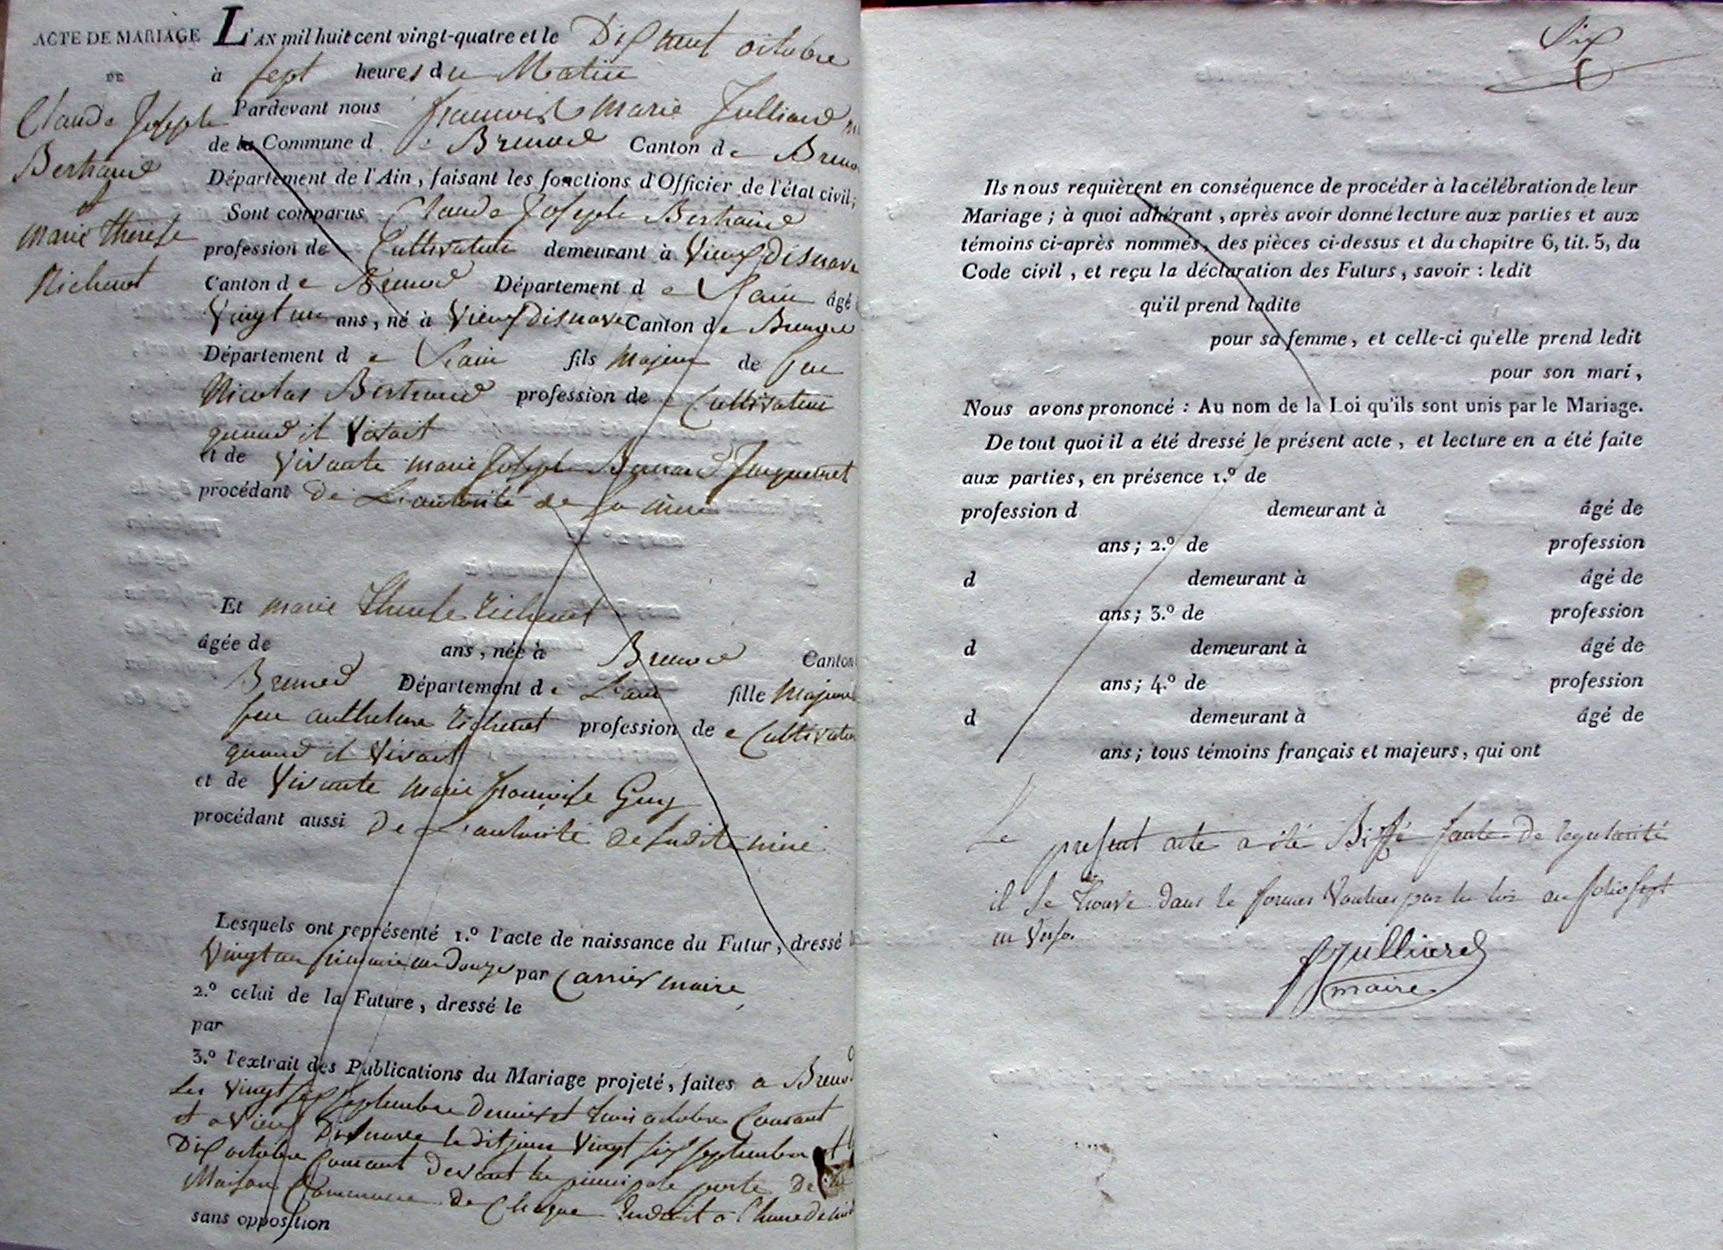 ACTE DE MARIAGE
DE
Claude Joseph
Bertrand
et
marie therese
Richenet
L'AN mil huit cent vingt-quatre et le Dix huit octobre
à sept heures du Matin
Pardevant nous francois Marie Julliard
de la Commune de Brenod Canton de
Département de l'Ain, faisant les fonctions d'Officier de l'état civil;
Sont comparus Claude Joseph Bertrand
profession de Cultivateur demeurant à Vieux Disnave
Canton de Brenod Département de Lain âgé
Vingt un ans, né à Vieux Disnave Canton de Brenod
Département de Lain fils Majeur de feu
Nicolas Bertrand profession de Cultivateur
quand il Vivait
et de Vivante marie Joseph Jacquenet
procédant De L'autorité de sa mère
Et marie Therese Richenet
âgée de ans, née à Brenod Canton
Brenod Département de Lain fille Majeure
feu anthelme Richenet profession de Cultivateur
quand il Vivait
et de Vivante marie francoise Guy
procédant aussi De L'autorité de sadite mère
Lesquels ont représenté 1.º l'acte de naissance du Futur, dressé
Vingt un frimaire an Douze par Carrier maire
2.º celui de la Future, dressé le
par
3.º l'extrait des Publications du Mariage projeté, faites a Brenod
Les Vingt six septembre Dernier et trois octobre Courant
et a Vieux Disnave ledit jour Vingt six septembre et
Dix octobre Courant devant la principale porte De la
Maison Commune de Chaque Endroit a l'heure de midi
sans opposition
Six
Ils nous requièrent en conséquence de procéder à la célébration de leur
Mariage; à quoi adhérant, après avoir donné lecture aux parties et aux
témoins ci-après nommés, des pièces ci-dessus et du chapitre 6, tit. 5, du
Code civil, et reçu la déclaration des Futurs, savoir : ledit
qu'il prend ladite
pour sa femme, et celle-ci qu'elle prend ledit
pour son mari,
Nous avons prononcé : Au nom de la Loi qu'ils sont unis par le Mariage.
De tout quoi il a été dressé le présent acte, et lecture en a été faite
aux parties, en présence 1.º de
profession d demeurant à âgé de
ans; 2.º de profession
d demeurant à âgé de
ans; 3.º de profession
d demeurant à âgé de
ans; 4.º de profession
d demeurant à âgé de
ans; tous témoins français et majeurs, qui ont
Le present acte a été Biffé faute de regularité
il se trouve dans le formes Voulues par la loi au folio sept
au Verso.
Julliard
maire